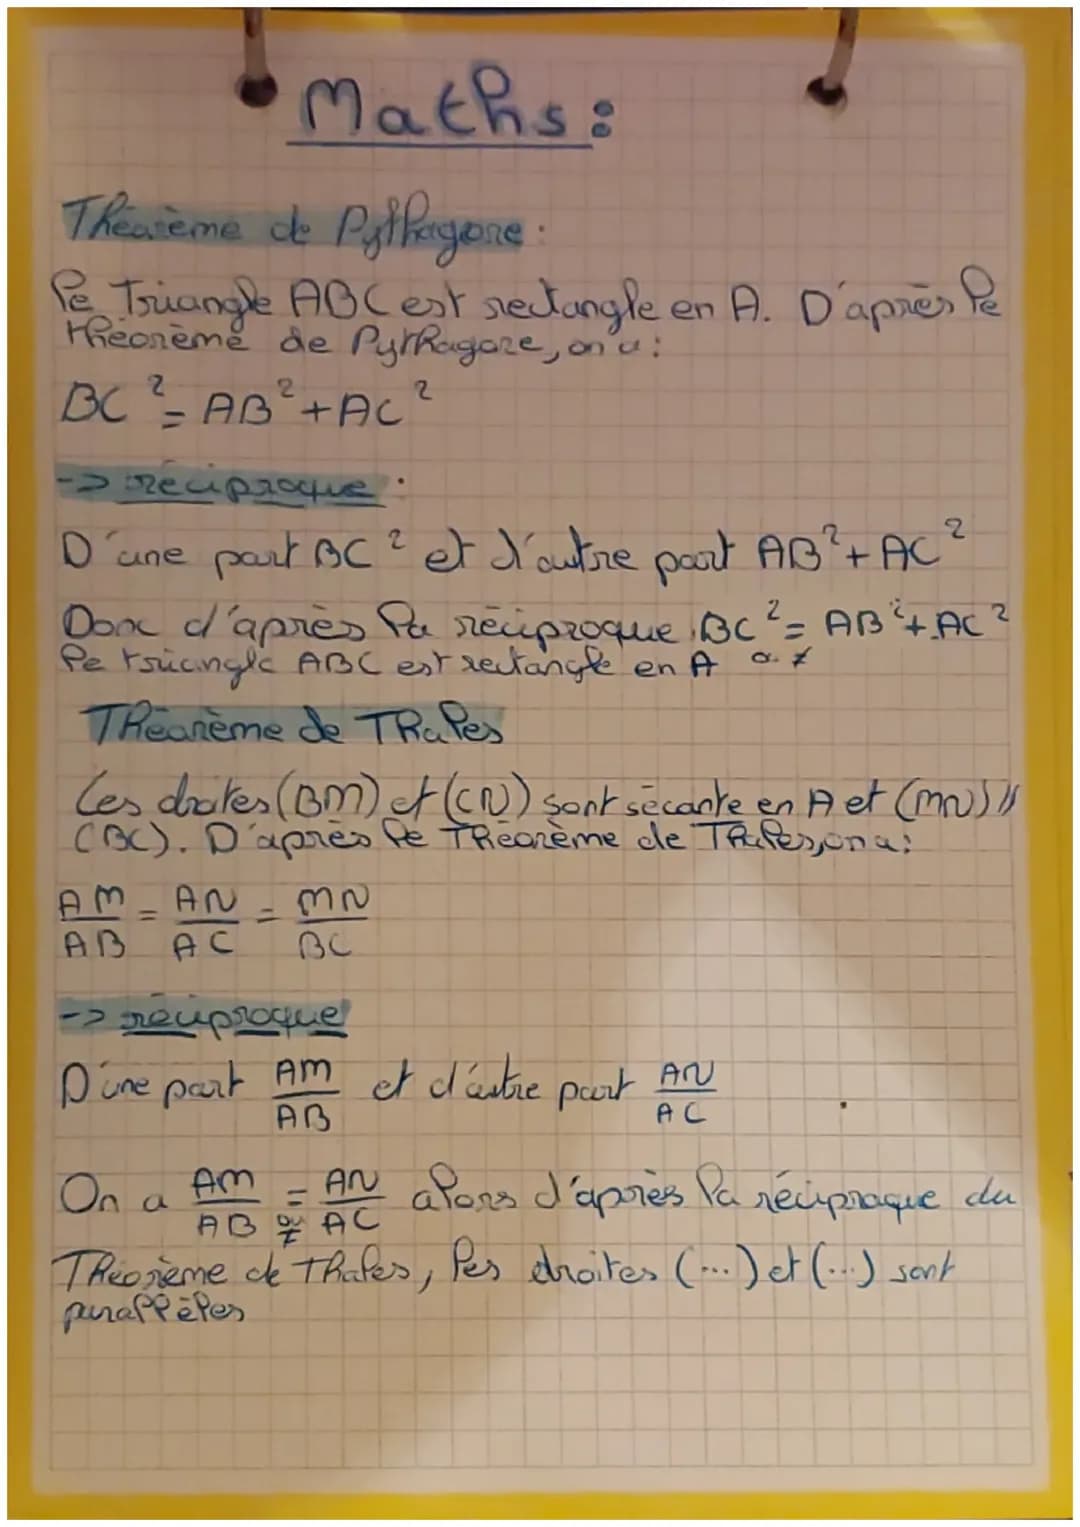 Maths:
Théorème de Pythagore:
le Triangle ABC est rectangle en A. D'après le
théorème de Pythagore, on a:
BC² = AB² + AC²
-> réciproque:
D'une part BC² et d'autre part AB² + AC²
Donc d'après la réciproque BC² = AB² + AC²
le triangle ABC est rectangle en A ou ≠
Théorème de Thales
Les droites (BM) et (CN) sont sécante en A et (MN) //
(BC). D'après le Théorème de Thales, on a:
AM/AB = AN/AC = MN/BC
-> réciproque
D'une part AM/AB et d'autre part AN/AC
On a AM/AB = ou ≠ AN/AC alors d'après la réciproque du
Théorème de Thales, les droites (...) et (...) sont
parallèles